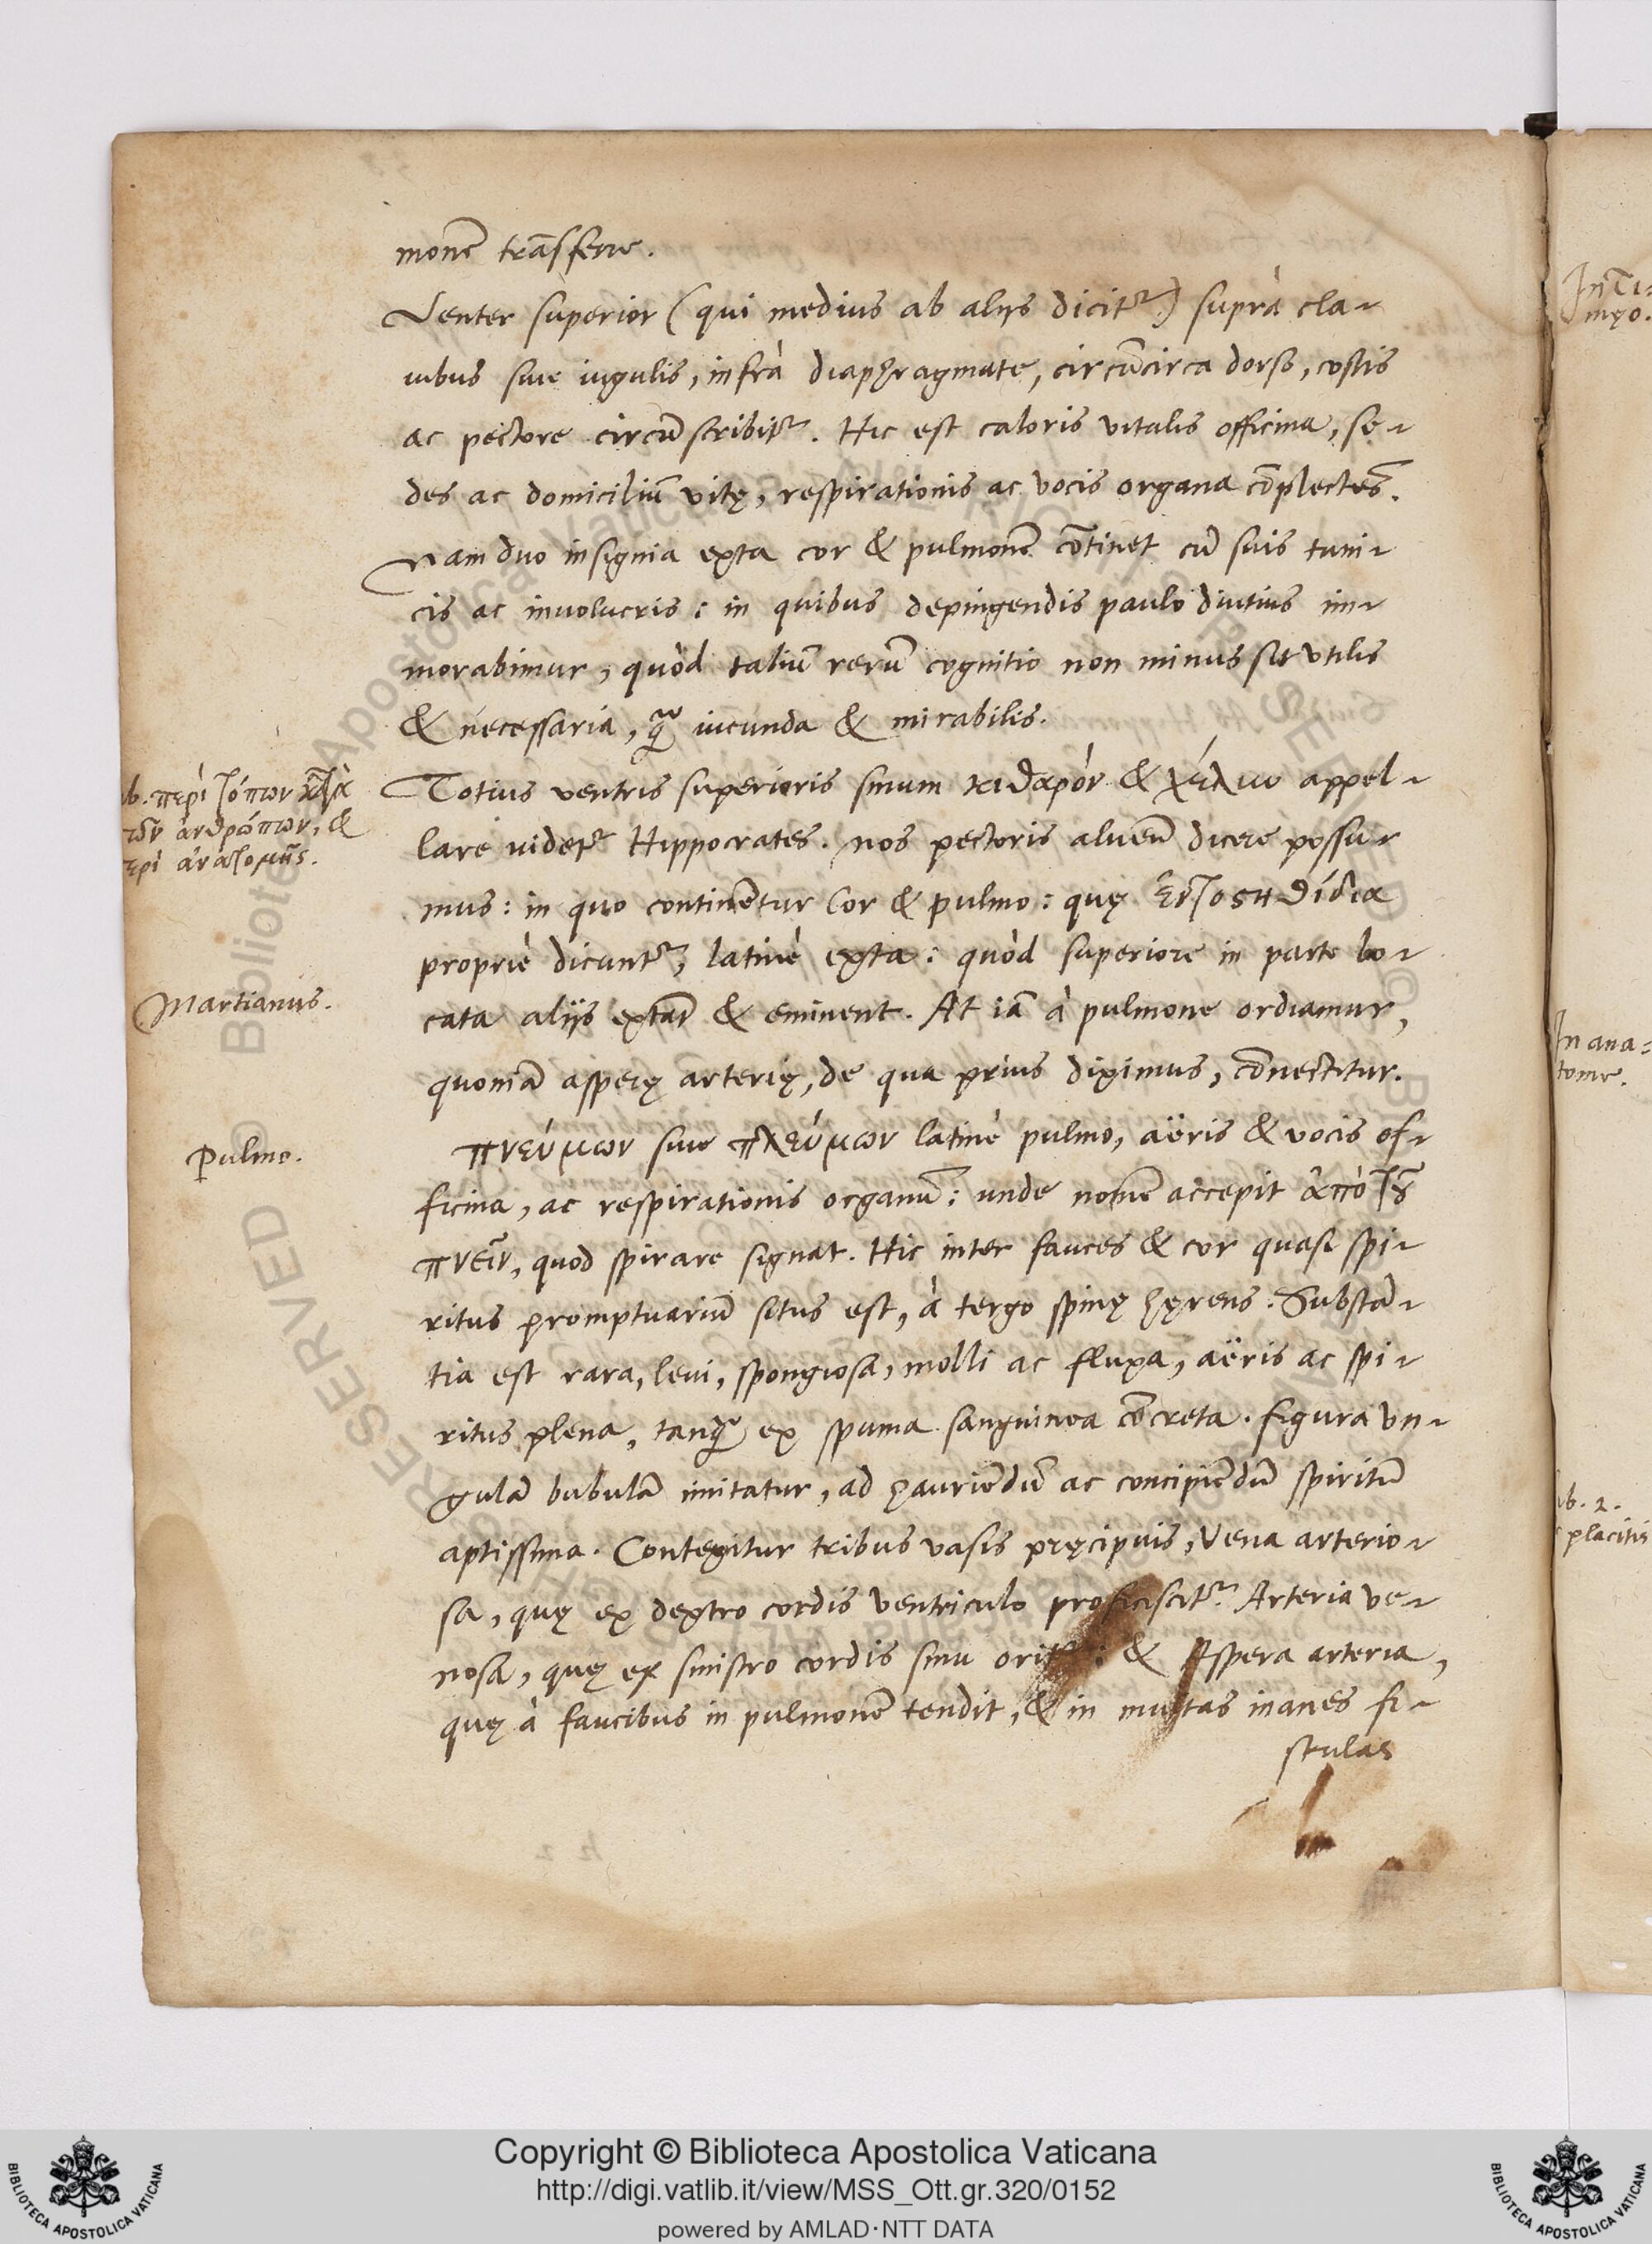 monē trāsferre.
Venter superior (qui medius ab alijs dicitr̄) suprà cla-
uibus siue iugulis, infrà diaphragmate, circūcirca dorso, costis
ac pectore circūscribitr̄. Hic est caloris vitalis officina, se-
des ac domiciliū vitę, respirationis ac vocis organa cōplectēs.
Nam duo insignia exta cor & pulmonē cōtinet cū suis tuni-
cis ac inuolucris: in quibus depingendis paulo diutius im-
morabimur, quòd taliū rerū cognitio non minus sit vtilis
& necessaria, q̄ iucunda & mirabilis.
ib. περὶ τόπων κατὰ
τῶν ἀνθρώπων, &
περὶ ἀνατομῆς.
Totius ventris superioris sinum κιθαρὸν & appel-
lare videtr̄ Hippocrates. nos pectoris alueū dicere possu-
mus: in quo continētur Cor & pulmo: quę ἐντοσηθίδια
propriè dicuntr̄, latinè exta: quòd superiore in parte lo-
Martianus.
cata alijs extāt & eminent. At iā à pulmone ordiamur,
quoniā asperę arterię, de qua prius diximus, cōnectitur.
Pulmo.
πνεύμων siue πλεύμων latinè pulmo, aëris & vocis of-
ficina, ac respirationis organū: unde nomē accepit ἀπὸ τοῦ
πνεῖν, quod spirare signat. Hic inter fauces & cor quasi spi-
ritus promptuariū situs est, à tergo spinę hęrens. Substā-
tia est rara, leui, spongiosa, molli ac fluxa, aëris ac spi-
ritus plena, tanq̄ ex spuma sanguinea cōcreta. figura vn-
gulā bubulā imitatur, ad hauriēdū ac concipiēdū spiritū
aptissima. Contegitur tribus vasis pręcipuis, Vena arterio-
sa, quę ex dextro cordis ventriculo proficiscitr̄. Arteria ve-
nosa, quę ex sinistro cordis sinu oritr̄: & Aspera arteria,
quę à faucibus in pulmonē tendit, & in multas inanes fi-
stulas
In Ti=
męo.
In ana=
tome.
ib. 2.
placitis
Copyright © Biblioteca Apostolica Vaticana
http://digi.vatlib.it/view/MSS_Ott.gr.320/0152
powered by AMLAD·NTT DATA
BIBLIOTECA APOSTOLICA VATICANA
BIBLIOTECA APOSTOLICA VATICANA